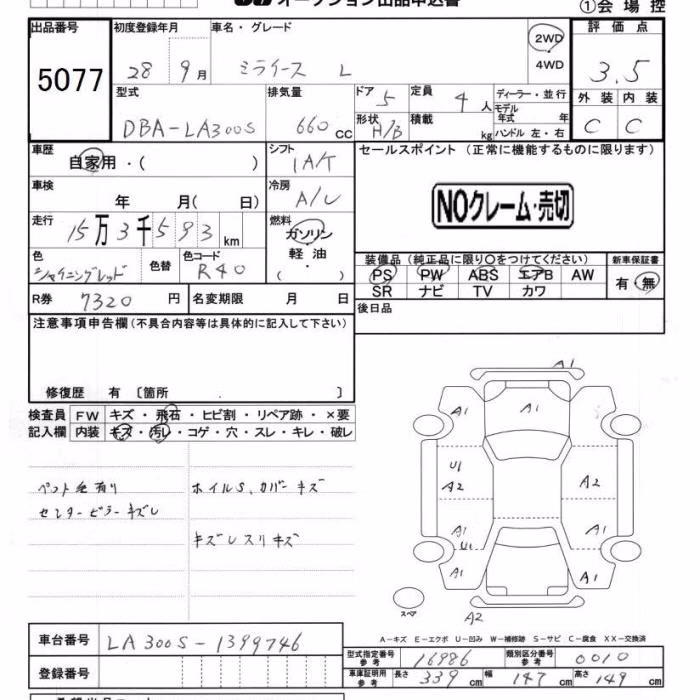 オークション出品申込書
①会場控
出品番号
5077
初度登録年月
28 9月
車名・グレード
ミライース L
2WD
4WD
評価点
3.5
外装 内装
C C
型式
DBA-LA300S
排気量
660 cc
ドア 5
定員 4 人
形状 H/B
積載 kg
ディーラー・並行
モデル年式 年
ハンドル 左・右
車歴
自家用・( )
シフト
IAT
セールスポイント (正常に機能するものに限ります)
NOクレーム・売切
車検
年 月( 日)
冷房
A/C
走行
15万3千593km
燃料
ガソリン
軽油
( )
色
シャイニングレッド
色替
色コード
R40
装備品 (純正品に限り○をつけてください)
PS PW ABS エアB AW
SR ナビ TV カワ
新車保証書
有・無
R券 7320 円
名変期限 月 日
後日品
注意事項申告欄(不具合内容等は具体的に記入して下さい)
修復歴 有 〔箇所 〕
検査員記入欄
FW キズ・飛石・ヒビ割・リペア跡・×要
内装 キズ・汚レ・コゲ・穴・スレ・キレ・破レ
ペット毛有り
センターピラーキズレ
ホイルS、カバーキズ
キズレスリキズ
A1
A1
A1
A1
U1
A2
A2
A1
U1
A1
A1
A1
スペア
A2
A-キズ E-エクボ U-凹み W-補修跡 S-サビ C-腐食 XX-交換済
車台番号
LA300S-1399746
登録番号
型式指定番号 参考
16986
類別区分番号 参考
0010
車庫証明用 参考
長さ 339 cm
幅 147 cm
高さ 149 cm